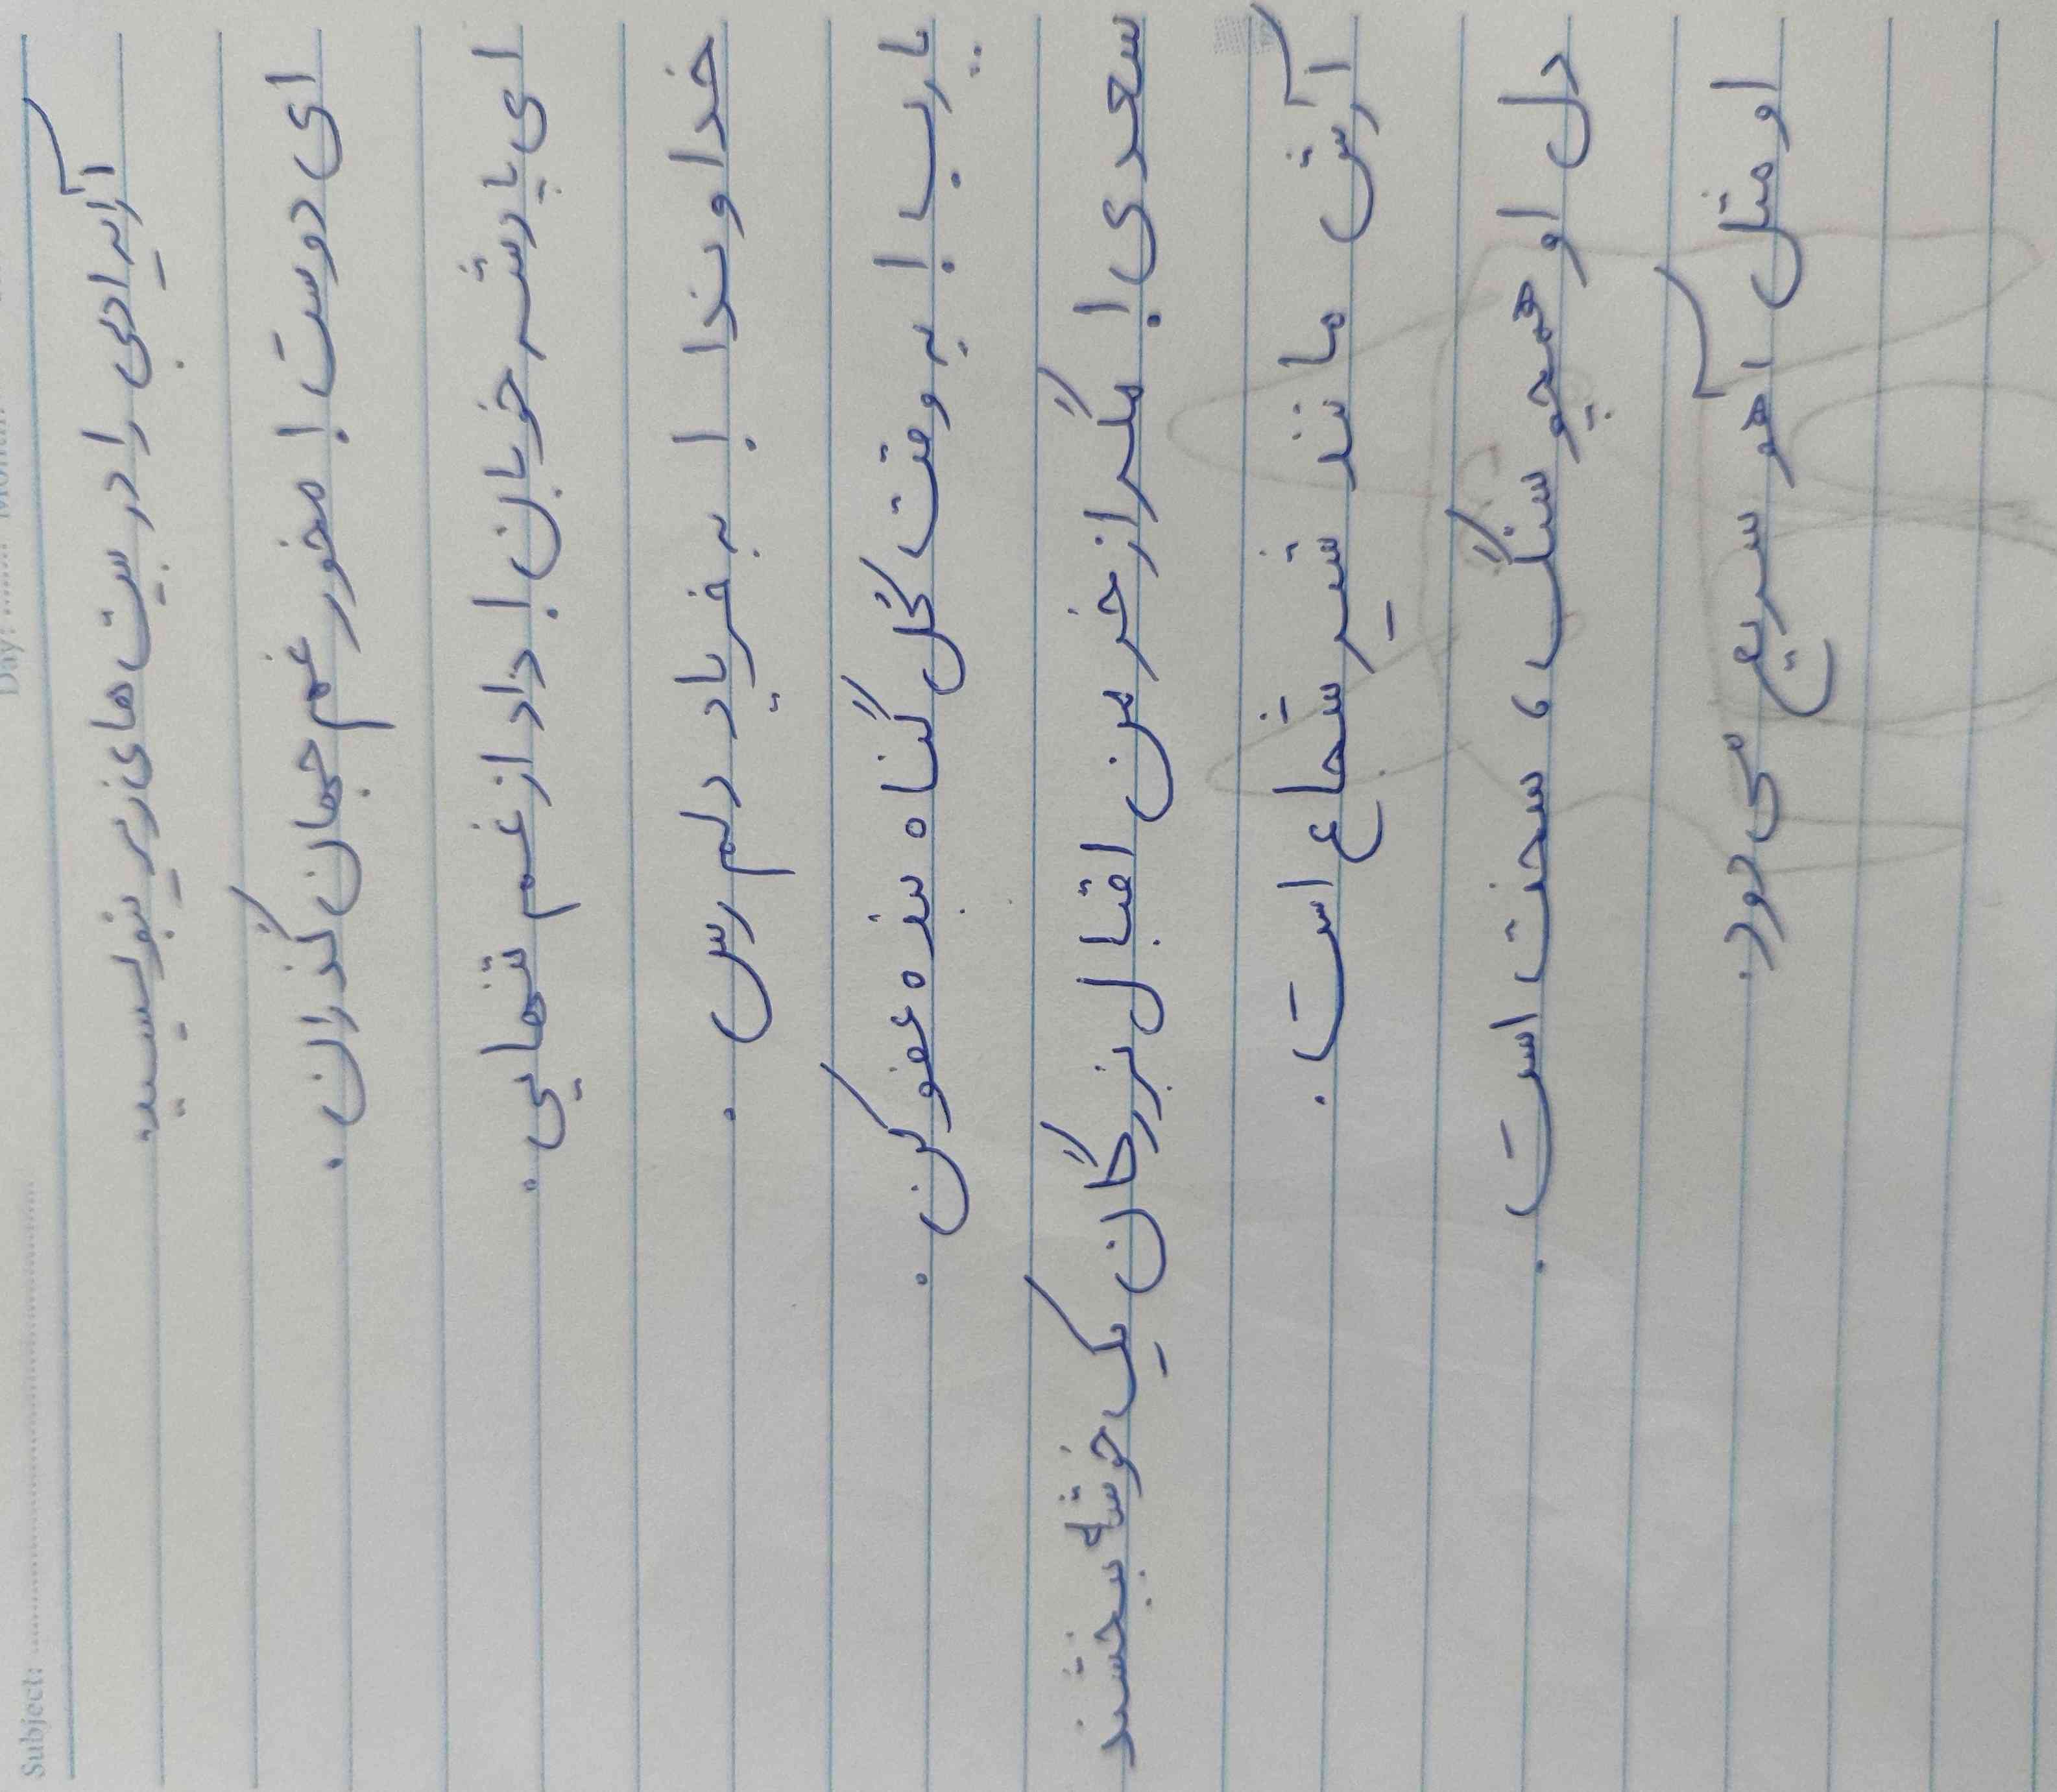 Subject: Day: Month:
آرایه ادبی را در بیت های زیر بنویسید.
ای دوست! مخور غم جهان گذران.
ای پادشه خوبان! داد از غم تنهایی.
خداوندا! به فریاد دلم رس.
یارب! به وقت گل گناه بنده عفو کن.
سعدی! مگر از خرمن اقبال بزرگان یک خوشه ببخشند
آرش مانند شیر شجاع است.
دل او همچو سنگ، سخت است.
او مثل آهو سریع می دود.